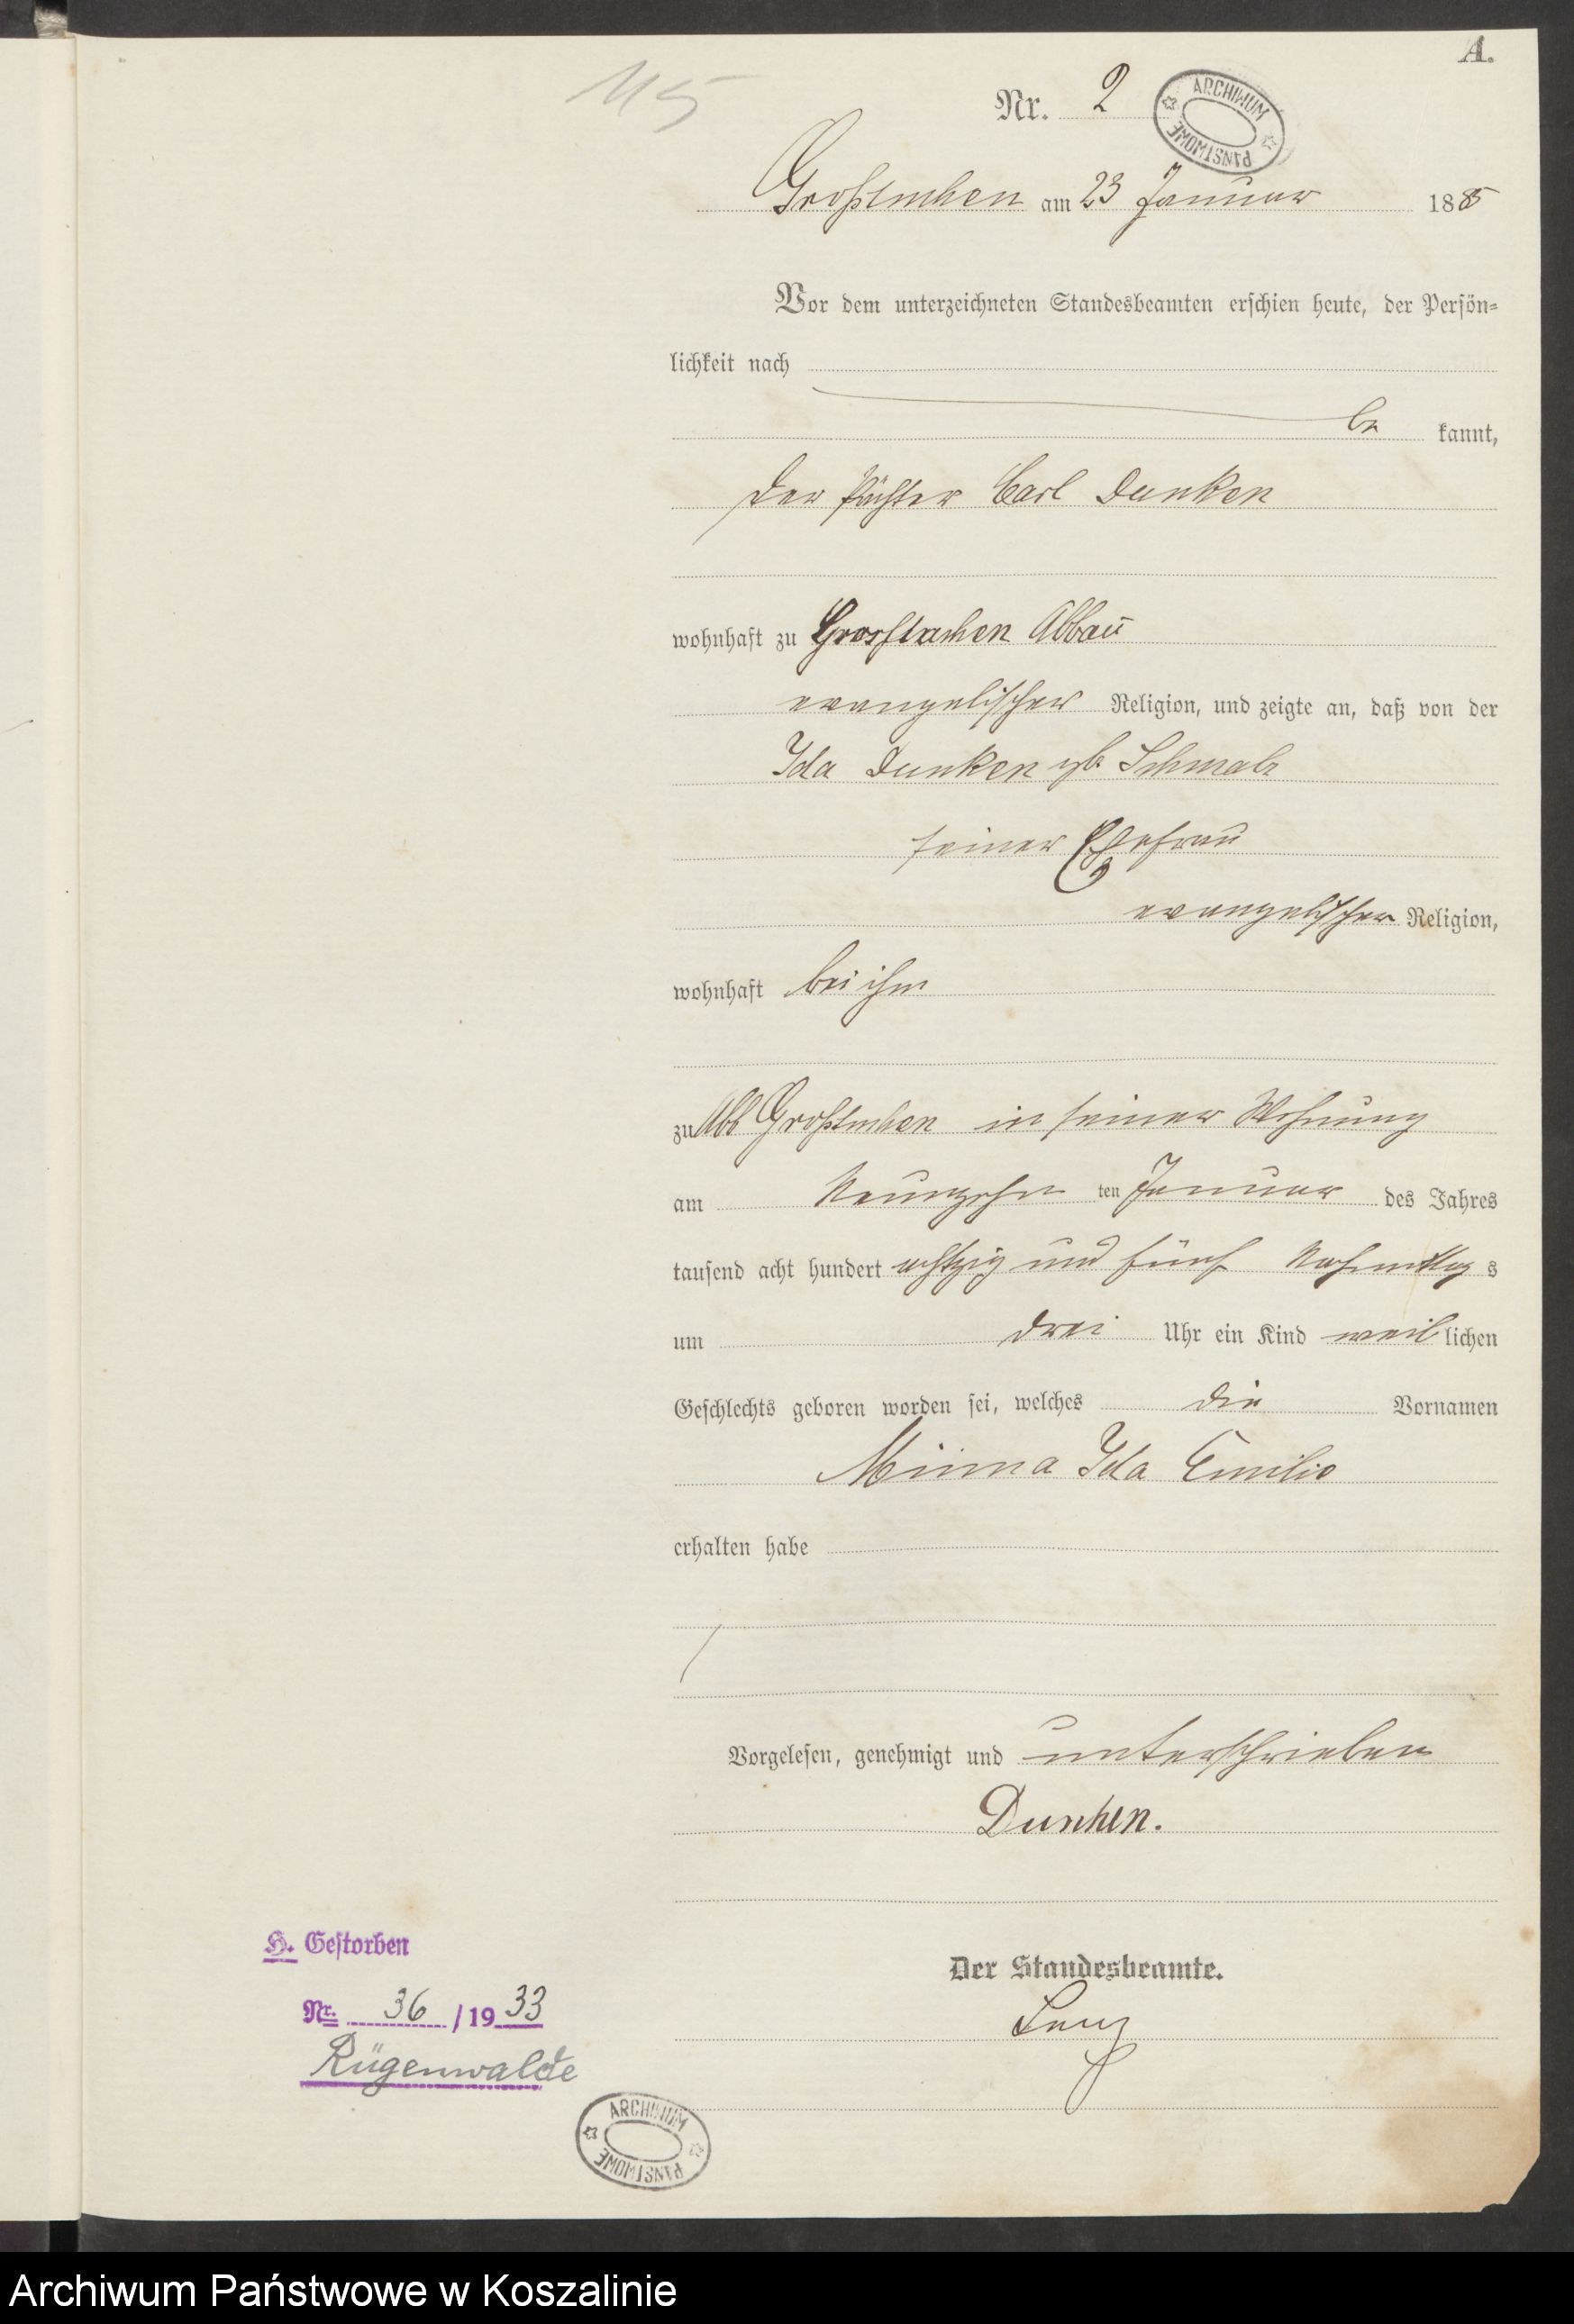 A.
115
Nr. 2
ARCHIWUM PAŃSTWOWE
Großtuchen am 23 Januar 1885
Vor dem unterzeichneten Standesbeamten erschien heute, der Persön=
lichkeit nach
be kannt,
der Pächter Carl Dunken
wohnhaft zu Grosstuchen Abbau
evangelischer Religion, und zeigte an, daß von der
Ida Dunken geb Schmalz
seiner Ehefrau
evangelischer Religion,
wohnhaft bei ihm
zu Abb Großtuchen in seiner Wohnung
am Neunzehn ten Januar des Jahres
tausend acht hundert achtzig und fünf Nachmittag s
um drei Uhr ein Kind weiblichen
Geschlechts geboren worden sei, welches die Vornamen
Minna Ida Emilie
erhalten habe
Vorgelesen, genehmigt und unterschrieben
Dunken.
Der Standesbeamte.
H. Gestorben
Nr. 36 / 1933
Rügenwalde
ARCHIWUM PAŃSTWOWE
Archiwum Państwowe w Koszalinie